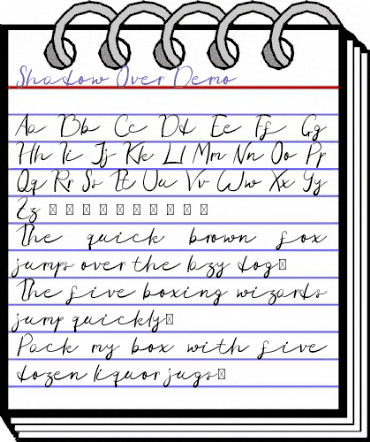 Shadow Over Demo
Aa Bb Cc Dd Ee Ff Gg
Hh Ii Jj Kk Ll Mm Nn Oo Pp
Qq Rr Ss Tt Uu Vv Ww Xx Yy
Zz
The quick brown fox
jumps over the lazy dog
The five boxing wizards
jump quickly
Pack my box with five
dozen liquor jugs